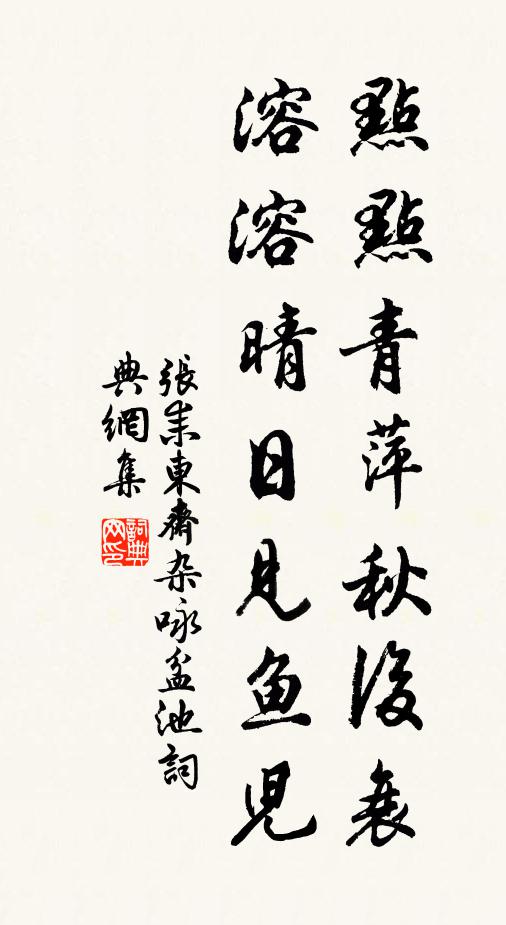 點點青萍秋後衰
溶溶晴日見魚兒
張耒東齋雜咏盆池詞
典網集
詞典
网印